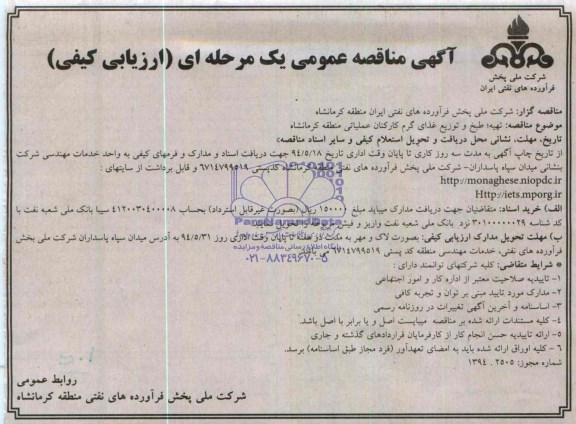 آگهی مناقصه عمومی یک مرحله ای (ارزیابی کیفی)
شرکت ملی پخش
فرآورده های نفتی ایران
مناقصه گزار: شرکت ملی پخش فرآورده های نفتی ایران منطقه کرمانشاه
موضوع مناقصه: تهیه؛ طبخ و توزیع غذای گرم کارکنان عملیاتی منطقه کرمانشاه
تاریخ، مهلت، نشانی محل دریافت و تحویل استعلام کیفی و سایر اسناد مناقصه:
از تاریخ چاپ آگهی به مدت سه روز کاری تا پایان وقت اداری تاریخ ۹۴/۵/۱۸ جهت دریافت اسناد و مدارک و فرمهای کیفی به واحد خدمات مهندسی شرکت
بنشانی میدان سپاه پاسداران- شرکت ملی پخش فرآورده های نفتی منطقه کرمانشاه کدپستی ۶۷۱۴۷۹۹۵۱۹ و قابل برداشت از سایتهای :
http://monaghese.niopdc.ir
Http://iets.mporg.ir
الف) خرید اسناد: متقاضیان جهت دریافت مدارک میباید مبلغ ۱۵۰۰۰۰ ریال (بصورت غیرقابل استرداد) بحساب ۴۱۲۰۰۳۰۴۰۰۰۰۸ سیبا بانک ملی شعبه نفت با
کد شناسه ۳۰۱۰۰۰۰۰۰۲۹ نزد بانک ملی شعبه نفت واریز و فیش مربوطه را تحویل نمایند.
ب) مهلت تحویل مدارک ارزیابی کیفی: بصورت لاک و مهر به مدت دو هفته تا پایان وقت اداری روز ۹۴/۵/۳۱ به آدرس میدان سپاه پاسداران شرکت ملی پخش
فرآورده های نفتی، خدمات مهندسی منطقه کد پستی ۶۷۱۴۷۹۹۵۱۹
* شرایط متقاضی: کلیه شرکتهای توانمند دارای :
۱- تاییدیه صلاحیت معتبر از اداره کار و امور اجتماعی
۲- مدارک مورد تایید مبنی بر توان و تجربه کافی
۳- اساسنامه و آخرین آگهی تغییرات در روزنامه رسمی
۴- کلیه مستندات ارائه شده بر مناقصه میبایست اصل و یا برابر با اصل باشد.
۵- ارائه تاییدیه حسن انجام کار از کارفرمایان قراردادهای گذشته و جاری
۶- کلیه اوراق ارائه شده باید به امضای تعهدآور (فرد مجاز طبق اساسنامه) برسد.
شماره مجوز: ۲۵۰۵ . ۱۳۹۴
روابط عمومی
شرکت ملی پخش فرآورده های نفتی منطقه کرمانشاه
پایگاه اطلاع رسانی مناقصه و مزایده
۰۲۱-۸۸۳۴۹۶۷۰-۵